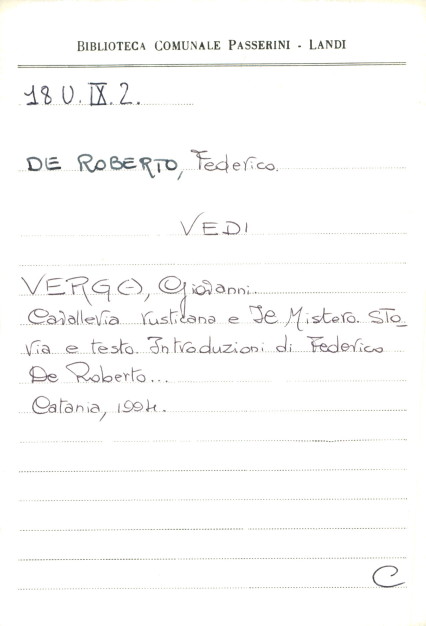 BIBLIOTECA COMUNALE PASSERINI - LANDI
18 U. IX. 2.
DE ROBERTO, Federico.
VEDI
VERGA, Giovanni.
Cavalleria rusticana e Il Mistero. Sto_
ria e testo. Introduzioni di Federico
De Roberto...
Catania, 1994.
C